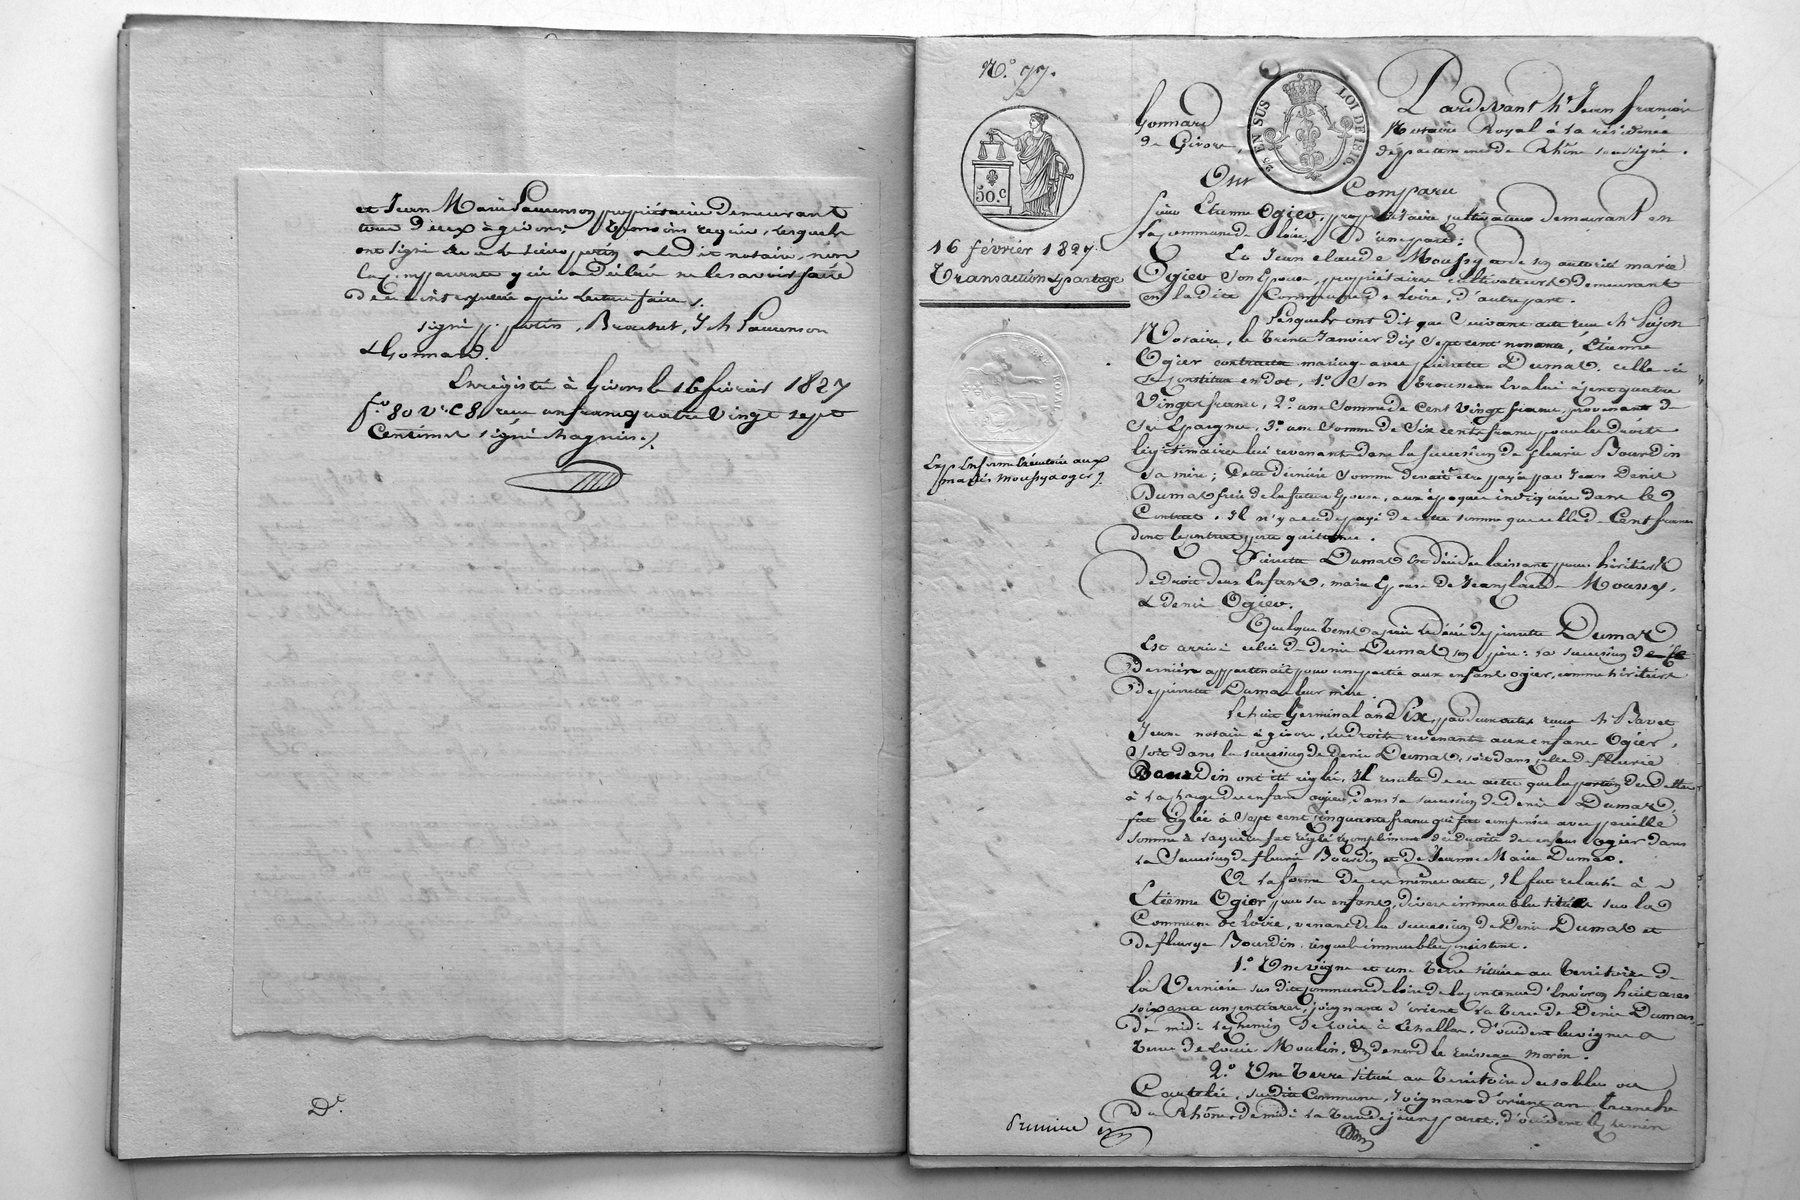 et Jean Marie Laurenson propriétaire demeurant
tous deux à givors, témoins requis, lesquels
ont signé avec le sieur potin et ledit notaire, non
la comparante qui a déclaré ne le savoir faire
de ce interpellée après lecture faite ./.
signé p. potin, Brochet, J M Laurenson
& Gonnard.
Enregistré à Givors le 16 février 1827
f.o 80 v.o C 8, reçu un franc quatre vingt sept
Centimes signé Magnin ./.
D.e
N.o 77.
50.C
EN SUS
LOI DE 1816.
16 février 1827
Transaction & partage
Exp. En forme Exécutoire aux
mariés Moussy & ogier ./.
Pardevant M.e Jean françois
Gonnard Notaire Royal à la résidence
de Givors, département du Rhône soussigné.
Ont Comparu
Sieur Etienne Ogier, propriétaire cultivateur demeurant en
la commune de loire, D'une part;
Et Jean claude Moussy & de son autorité marie
Ogier son Epouse, propriétaires cultivateurs demeurant
en la dite Commune de Loire, d'autre part.
Lesquels ont dit que Suivant acte reçu M.e Pujon
Notaire, le trente Janvier dix sept cent nonante, Etienne
Ogier contracta mariage avec pierrette Dumas. celle-ci
se constitua en dot, 1.o Son trousseau Evalué à cent quatre
Vingt francs, 2.o une somme de Cent Vingt francs, provenant de
Ses Epargnes, 3.o une Somme de Six cents francs pour les droits
légitimaires lui revenant dans la succession de fleurie Bourdin
sa mère; Cette dernière Somme devait être payée par Jean Denis
Dumas frère de la future Epouse, aux époques indiquées dans le
Contrat. Il n'y a eu de payé de cette somme que celle de Cent francs
dont le contrat porte quittance.
Pierrette Dumas Est décédée laissant pour héritiers
de Droit deux Enfants, marie Epouse de Jean claude Moussy,
& denis Ogier.
Quelque tems après le décès de pierrette Dumas
Est arrivé celui de denis Dumas son père: la succession de ce
dernier appartenait pour une partie aux enfants ogier, comme héritiers
de pierrette Dumas leur mère.
Le huit Germinal an Six, par deux actes reçus M.e Bavet
Jeune notaire à givors, les droits revenants aux enfants Ogier,
soit dans la succession de denis Dumas, soit dans celle de fleurie
Bourdin ont été réglés, Il résulte de ces actes que la portion des dettes
à la charge des enfants ogier, dans la succession de denis Dumas,
fut réglée à Sept cent cinquante francs qui fut compensée avec pareille
somme à laquelle fut réglé le complément des droits des enfants Ogier dans
la Succession de fleurie Bourdin et de Jeanne Marie Dumas.
En la forme de ces mêmes actes, Il fut relaché à
Etienne Ogier pour ses enfants, divers immeubles situés sur la
Commune de Loire, venant de la succession de Denis Dumas et
de fleurye Bourdin lesquels immeubles consistent.
1.o Une vigne et une terre située au territoire de
la Vernière sur dite commune de loire de la contenue d'Environ huit ares
soixante un centiares, joignant d'orient la terre de Denis Dumas,
de midi le chemin de Loire à Echallas, d'occident les vignes &
terre de Louis Moulin, & de nord le ruisseau morin.
2.o Une terre située au territoire des sables ou
Coutelée, sur dite Commune, Joignant d'orient une branche
du Rhône, de midi la terre de jean, d'occident le chemin
Première